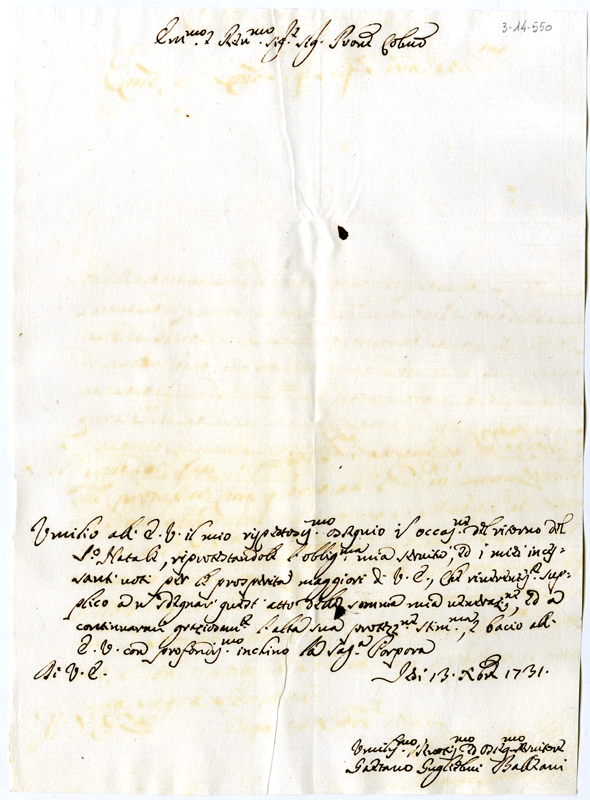 3-14-550
Em.mo e Rev.mo Sig.r Sig. Pron.e Col.mo
Umilio all' E. V. il mio rispettosis.mo ossequio in occas.ne del ritorno del
S.o Natale, riprotestandole l'obblig.ma mia servitù, ed i miei inces-
santi voti per le prosperità maggiori di V. E., che riverentem.te sup-
plico a non sdegnar quest' atto della somma mia veneraz.ne, ed a
continuarmi graziosam.te l'alta sua protez.ne stim.ma, e bacio all'
E. V. con profondis.mo inchino la Sag.ra Porpora
Di V. E.
13. Xbre 1731.
Umilis.mo ed Obblig.mo Servitore
Gaetano Guglielmi Balzani